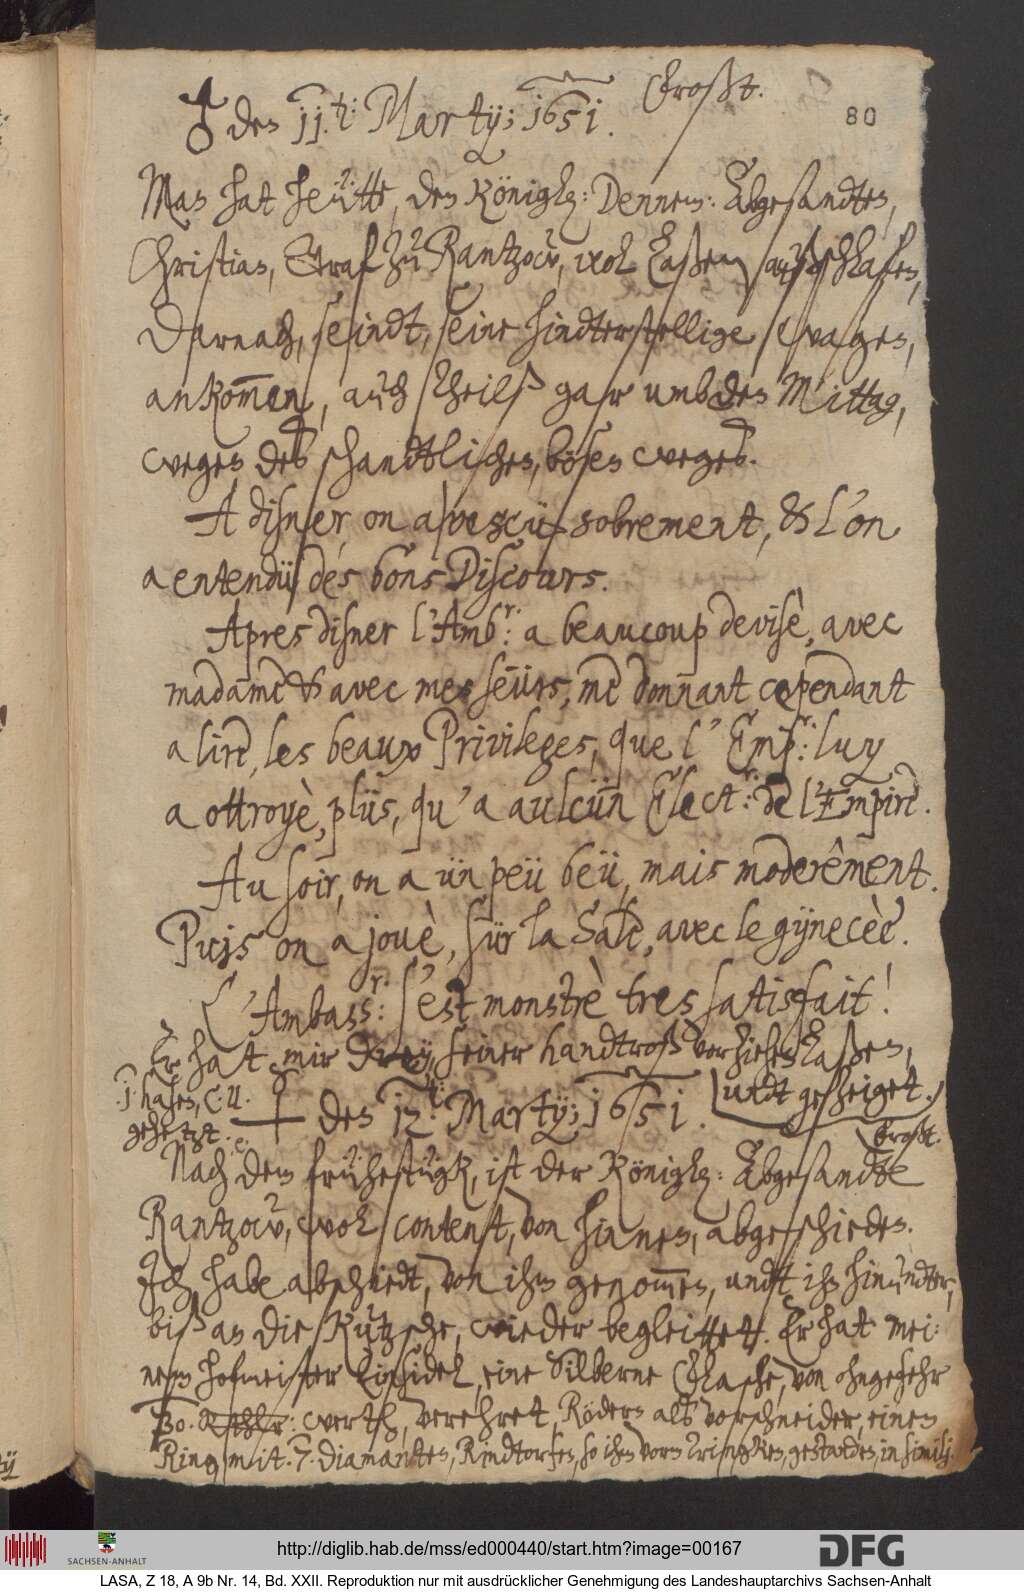 ♂ den 11.ti: Martij; 1651. (Frost.
80
Man hat heütte, den Königl: Dennem: Abgesandten,
Christian, Graf zu Rantzow, wol laßen außschlafen,
Darnach, seindt, seine hindterstellige wagen,
ankommen, auch theilß gar umb den Mittag,
wegen deß schandtlichen, bösen wegeß.
A disner, on a vescü sobrement, & l'on
a entendü des bons Discours.
Apres disner l'Ambr: a beaucoup devisè, avec
madame & avec mes seürs, me donnant cependant
a lire, les beaux Privileges, que l'Empr: luy
a ottroyè, plüs, qu'a aulcün Electr: de l'Empire.
Au soir, on a ün peü beü, mais moderèment.
Puis on a jouè, sür la Sale, avec le gÿnecèe.
L'Ambassr: s'est monstrè tres satisfait!
Er hat mir Drey, seiner handtroß vorziehen laßen,
undt gezeiget.)
.1. hasen, C. U.
gehetzt. e.
den 12.ti: Martij; 1651.
(Frost.
Nach dem frühestügk, ist der Königl: Abgesandte
Rantzow, wol content, von hinnen, abgeschieden.
Ich habe abschiedt, von ihm genommen, undt ihn hinundter,
biß an die Kutzsche, wieder begleittett. Er hat mei:
nem hofmeister Einsidel, eine Silberne Flasche, von ohngefehr
30. Rthlr: werth, verehret, Rödern alß vorschneider, einen
Ring mit .7. diamanten, Rindtorfen, so ihm vorm Trincken, gestanden, in simili.
http://diglib.hab.de/mss/ed000440/start.htm?image=00167
SACHSEN-ANHALT
DFG
LASA, Z 18, A 9b Nr. 14, Bd. XXII. Reproduktion nur mit ausdrücklicher Genehmigung des Landeshauptarchivs Sachsen-Anhalt